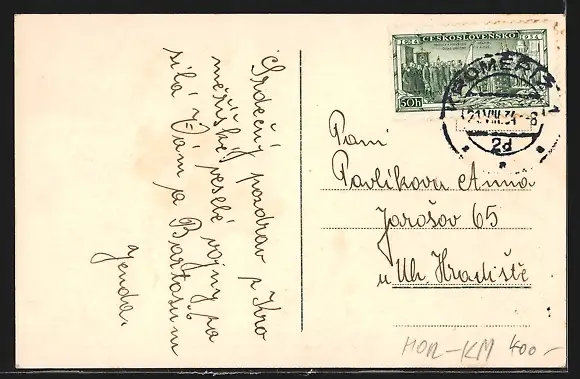 Srdečný pozdrav z Kro
měřížské veselé vojny za
sílá Vám a Bartošům
Jenda.
ČESKOSLOVENSKO
1914 1934
50h
KROMĚŘÍŽ 1
21.VIII.34.-8
2d
Paní
Pavlíkova Anna
Jarošov 65
u Uh. Hradiště
HOR-KM 400,-